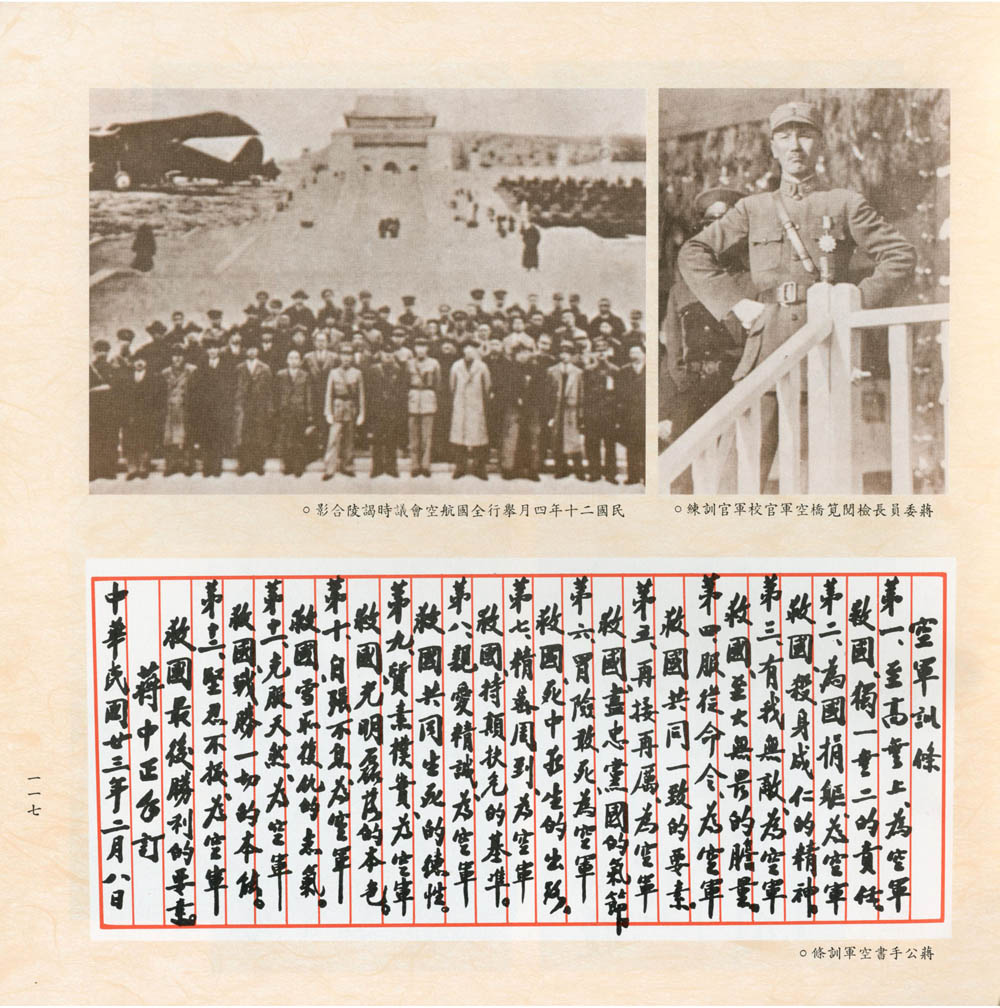 蔣委員長檢閱筧橋空軍官校軍官訓練。
民國二十年四月舉行全國航空會議時謁陵合影。
空軍訓條
第一、至高無上、為空軍
救國、獨一無二的責任。
第二、為國捐軀、為空軍
救國殺身成仁的精神。
第三、有我無敵、為空軍
救國、至大無畏的膽量。
第四、服從命令、為空軍
救國共同一致的要素。
第五、再接再厲、為空軍
救國盡忠黨國的氣節。
第六、冒險敢死、為空軍
救國、死中求生的出路。
第七、精密周到、為空軍
救國持顛扶危的基準。
第八、親愛精誠、為空軍
救國共同生死的德性。
第九、質素樸實、為空軍
救國光明磊落的本色。
第十、自強不息、為空軍
救國、雪恥復仇的志氣。
第十一、克服天然、為空軍
救國、戰勝一切的本能。
第十二、堅忍不拔、為空軍
救國最後勝利的要素。
蔣中正手訂
中華民國廿三年二月八日
蔣公手書空軍訓條。
一一七